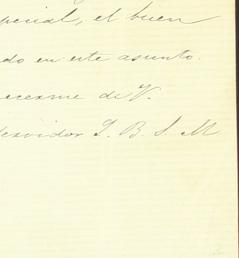 pecial, el buen
do en este asunto.
ecerme de V.
servidor Q. B. S. M